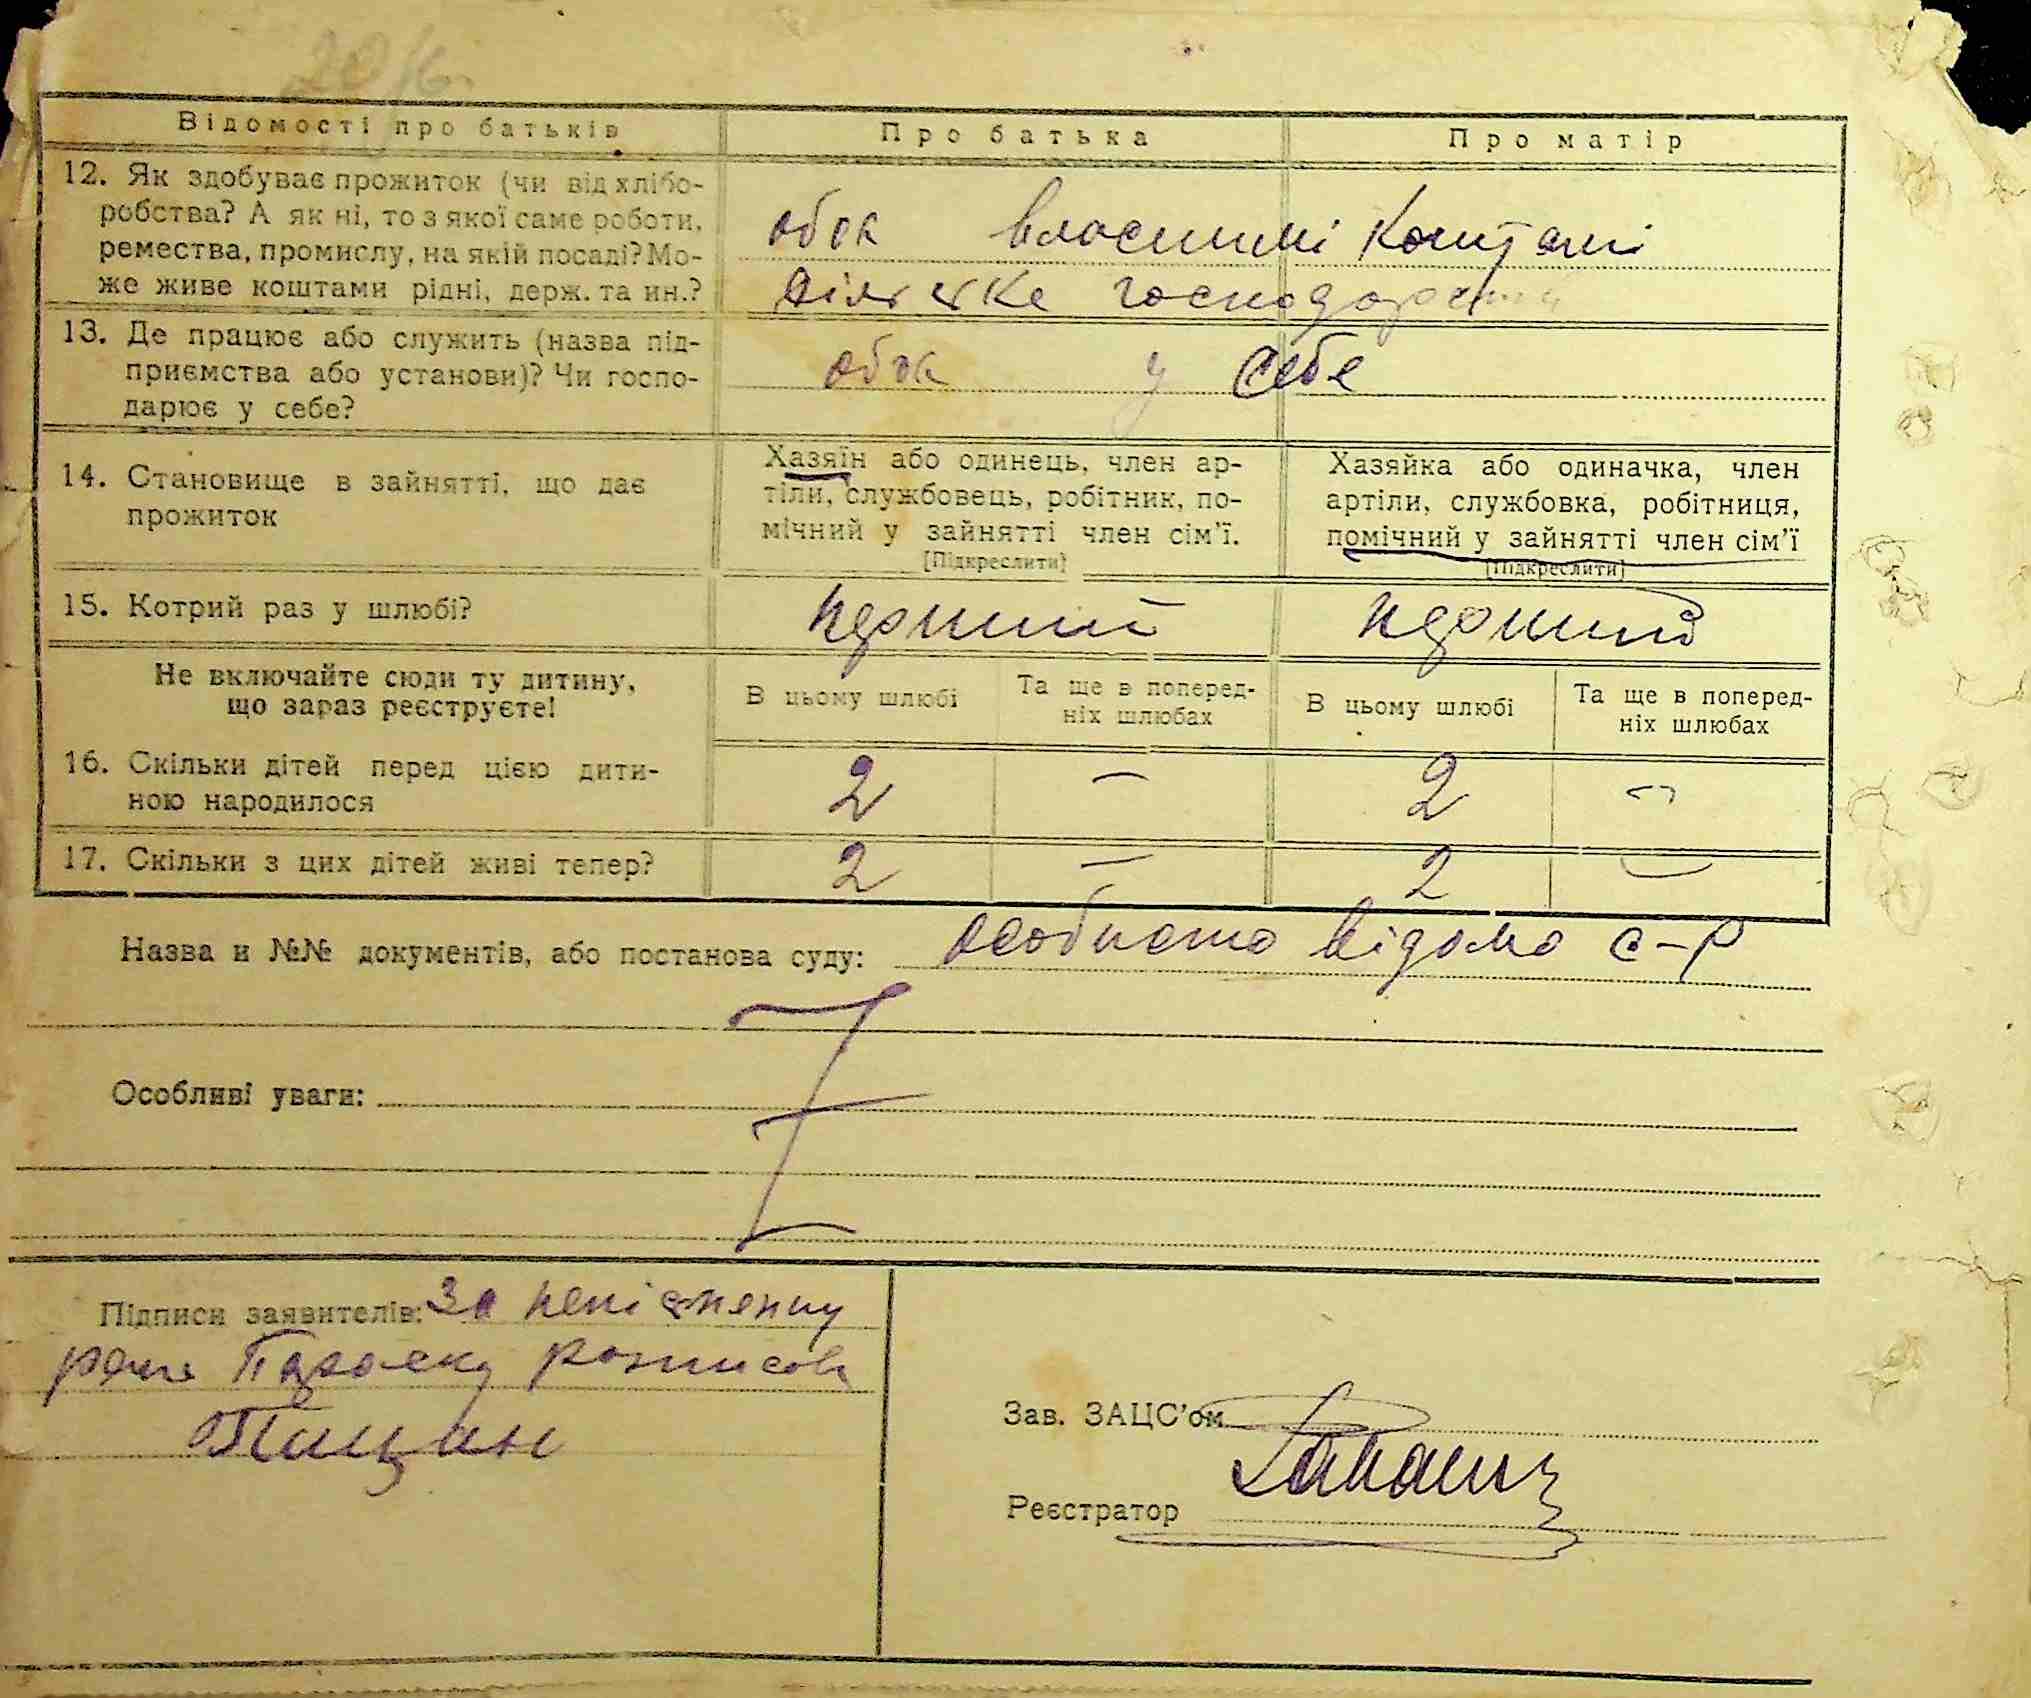 Відомості про батьків
Про батька
Про матір
12. Як здобуває прожиток (чи від хлібо-
робства? А як ні, то з якої саме роботи,
ремества, промислу, на якій посаді? Мо-
же живе коштами рідні, держ. та ин.?
обоє власними коштамі
сільське господарство
13. Де працює або служить (назва під-
приємства або установи)? Чи госпо-
дарює у себе?
обоє у себе
14. Становище в зайнятті, що дає
прожиток
Хазяїн або одинець, член ар-
тіли, службовець, робітник, по-
мічний у зайнятті член сім'ї.
[Підкреслити]
Хазяйка або одиначка, член
артіли, службовка, робітниця,
помічний у зайнятті член сім'ї
[Підкреслити]
15. Котрий раз у шлюбі?
перший
перший
Не включайте сюди ту дитину,
що зараз реєструєте!
В цьому шлюбі
Та ще в поперед-
ніх шлюбах
В цьому шлюбі
Та ще в поперед-
ніх шлюбах
16. Скільки дітей перед цією дити-
ною народилося
2 — 2 —
17. Скільки з цих дітей живі тепер?
2 — 2 —
Назва и №№ документів, або постанова суду: особисто відомо с-р
Особливі уваги:
Підписи заявителів: За неписменну
розписова
Зав. ЗАЦС'ом
Реєстратор